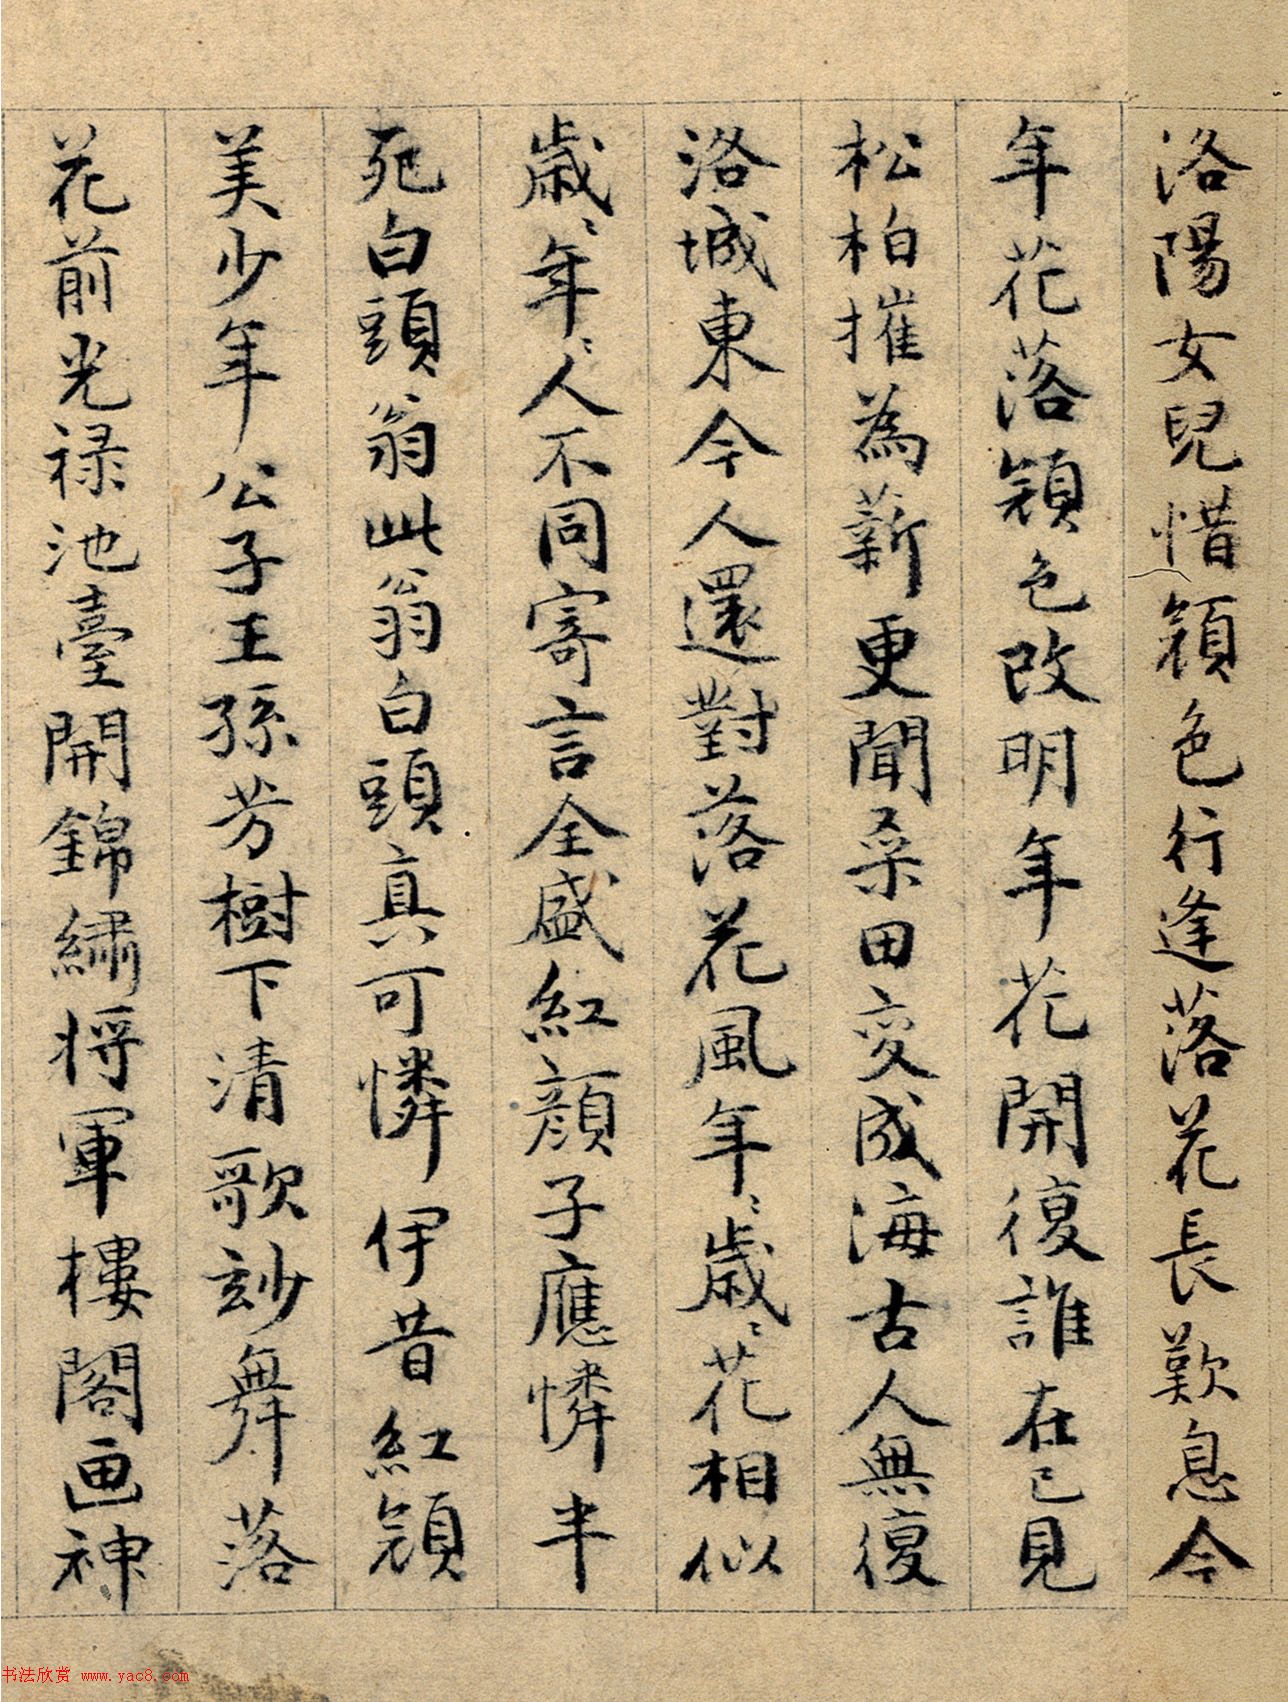 洛陽女兒惜顔色行逢落花長歎息今
年花落顔色改明年花開復誰在已見
松柏摧為薪更聞桑田变成海古人無復
洛城東今人還對落花風年〻歲〻花相似
歲〻年〻人不同寄言全盛紅顔子應憐半
死白頭翁此翁白頭真可憐伊昔紅顔
美少年公子王孫芳樹下清歌妙舞落
花前光禄池臺開錦繡将軍樓閣画神
书法欣赏 www.yac8.com